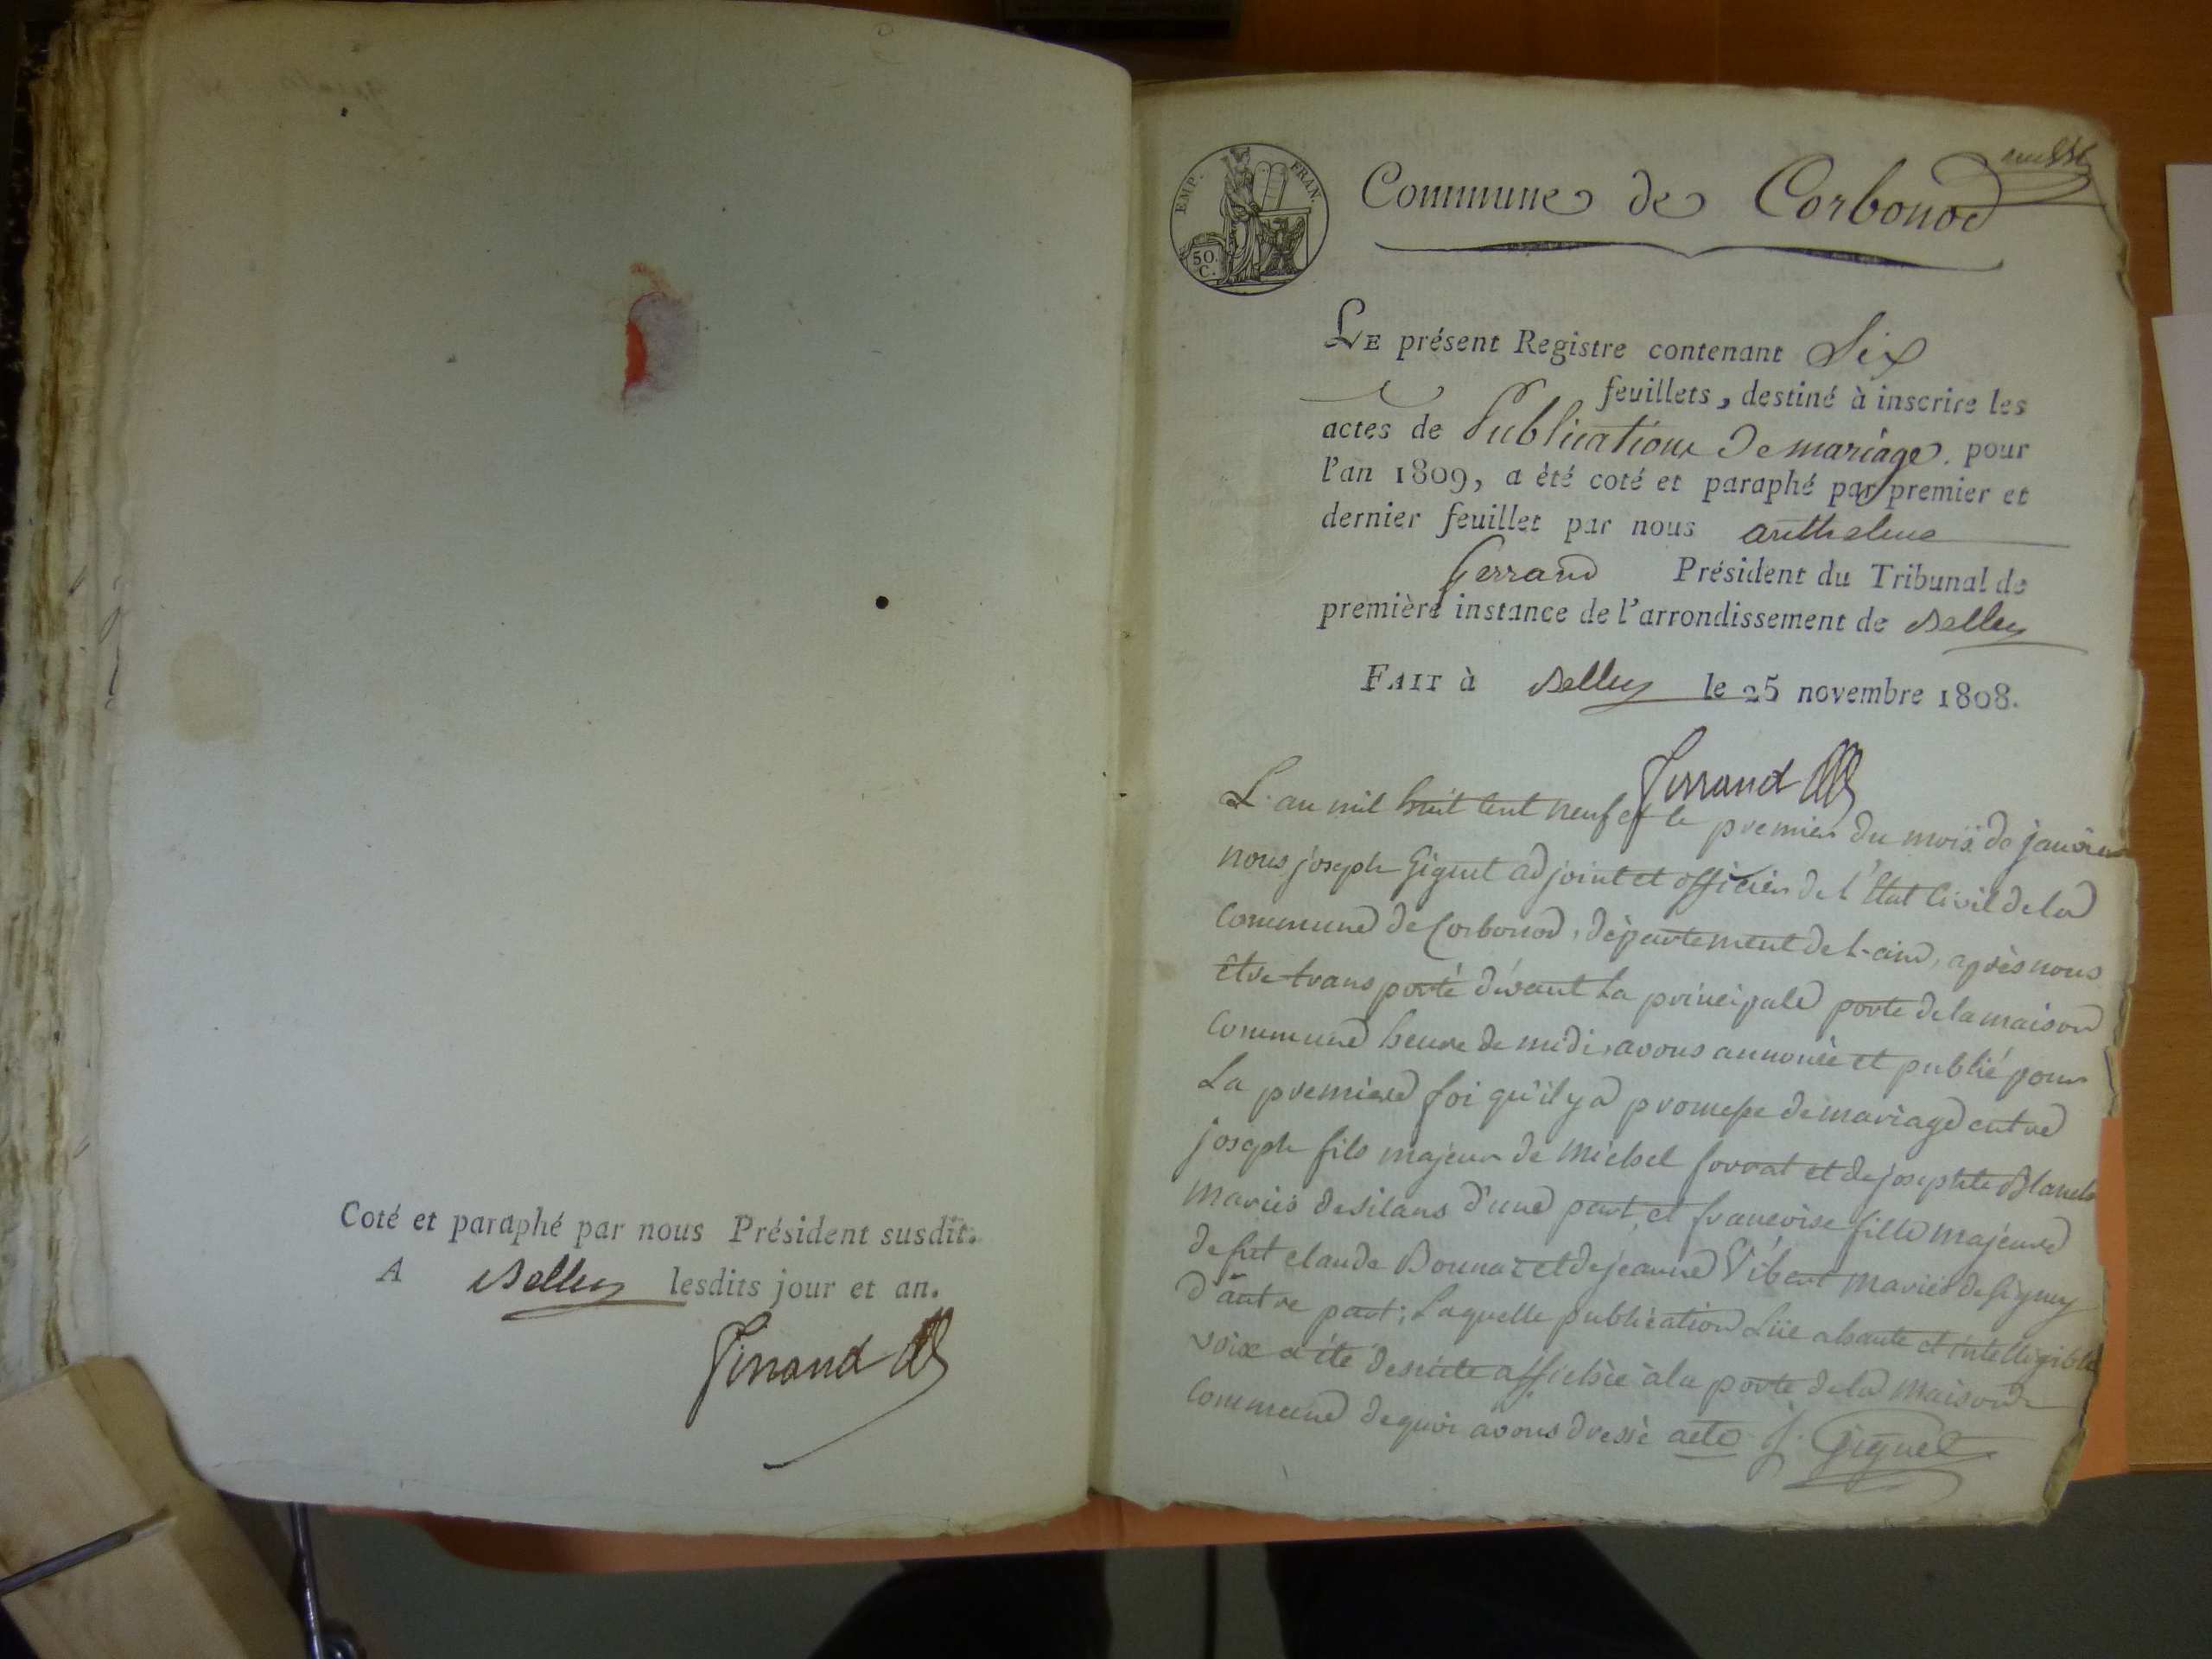 Coté et paraphé par nous Président susdit.
A Belley lesdits jour et an.
Ferrand
EMP. FRAN.
50. C.
Commune de Corbonod
LE présent Registre contenant Six
feuillets, destiné à inscrire les
actes de Publications de mariage. pour
l'an 1809, a été coté et paraphé par premier et
dernier feuillet par nous anthelme
ferrand Président du Tribunal de
première instance de l'arrondissement de Belley
FAIT à Belley le 25 novembre 1808.
Ferrand
L'an mil huit cent neuf et le premier du mois de janvier
nous joseph Giguet adjoint et officier de l'Etat Civil de la
Commune de Corbonod, département de l-ain, après nous
être transporté dévant la principale porte de la maison
Commune heure de midi, avons annoncé et publié pour
La premiere foi qu'il y a promesse de mariage entre
joseph fils majeur de michel forrat et de josephte Blanch
mariés de silans d'une part, et francoise fille majeure
de fut claude Bonnaz et de jeanne Vibert mariés de Gigney
d'autre part; Laquelle publication Lüe a haute et intelligible
voix a été desuite affichée à la porte de la maison
Commune de quoi avons dressé acte J. Giguet